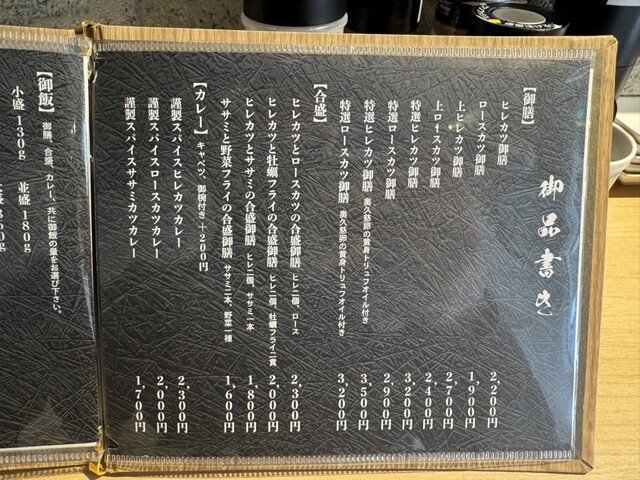 御品書き
【御膳】
ヒレカツ御膳 2,200円
ロースカツ御膳 1,900円
上ヒレカツ御膳 2,700円
上ロースカツ御膳 2,400円
特選ヒレカツ御膳 3,200円
特選ロースカツ御膳 2,900円
特選ヒレカツ御膳 奥久慈卵の黄身トリュフオイル付き 3,500円
特選ロースカツ御膳 奥久慈卵の黄身トリュフオイル付き 3,200円
【合盛】
ヒレカツとロースカツの合盛御膳 ヒレ二個、ロース 2,300円
ヒレカツと牡蠣フライの合盛御膳 ヒレ二個、牡蠣フライ二貫 2,000円
ヒレカツとササミの合盛御膳 ヒレ二個、ササミ一本 1,800円
ササミと野菜フライの合盛御膳 ササミ二本、野菜一種 1,600円
【カレー】 キャベツ、御椀付き+200円
謹製スパイスヒレカツカレー 2,300円
謹製スパイスロースカツカレー 2,000円
謹製スパイスササミカツカレー 1,700円
【御飯】 御膳、合盛、カレー、共に御飯の量をお選び下さい。
小盛 130g 並盛 180g